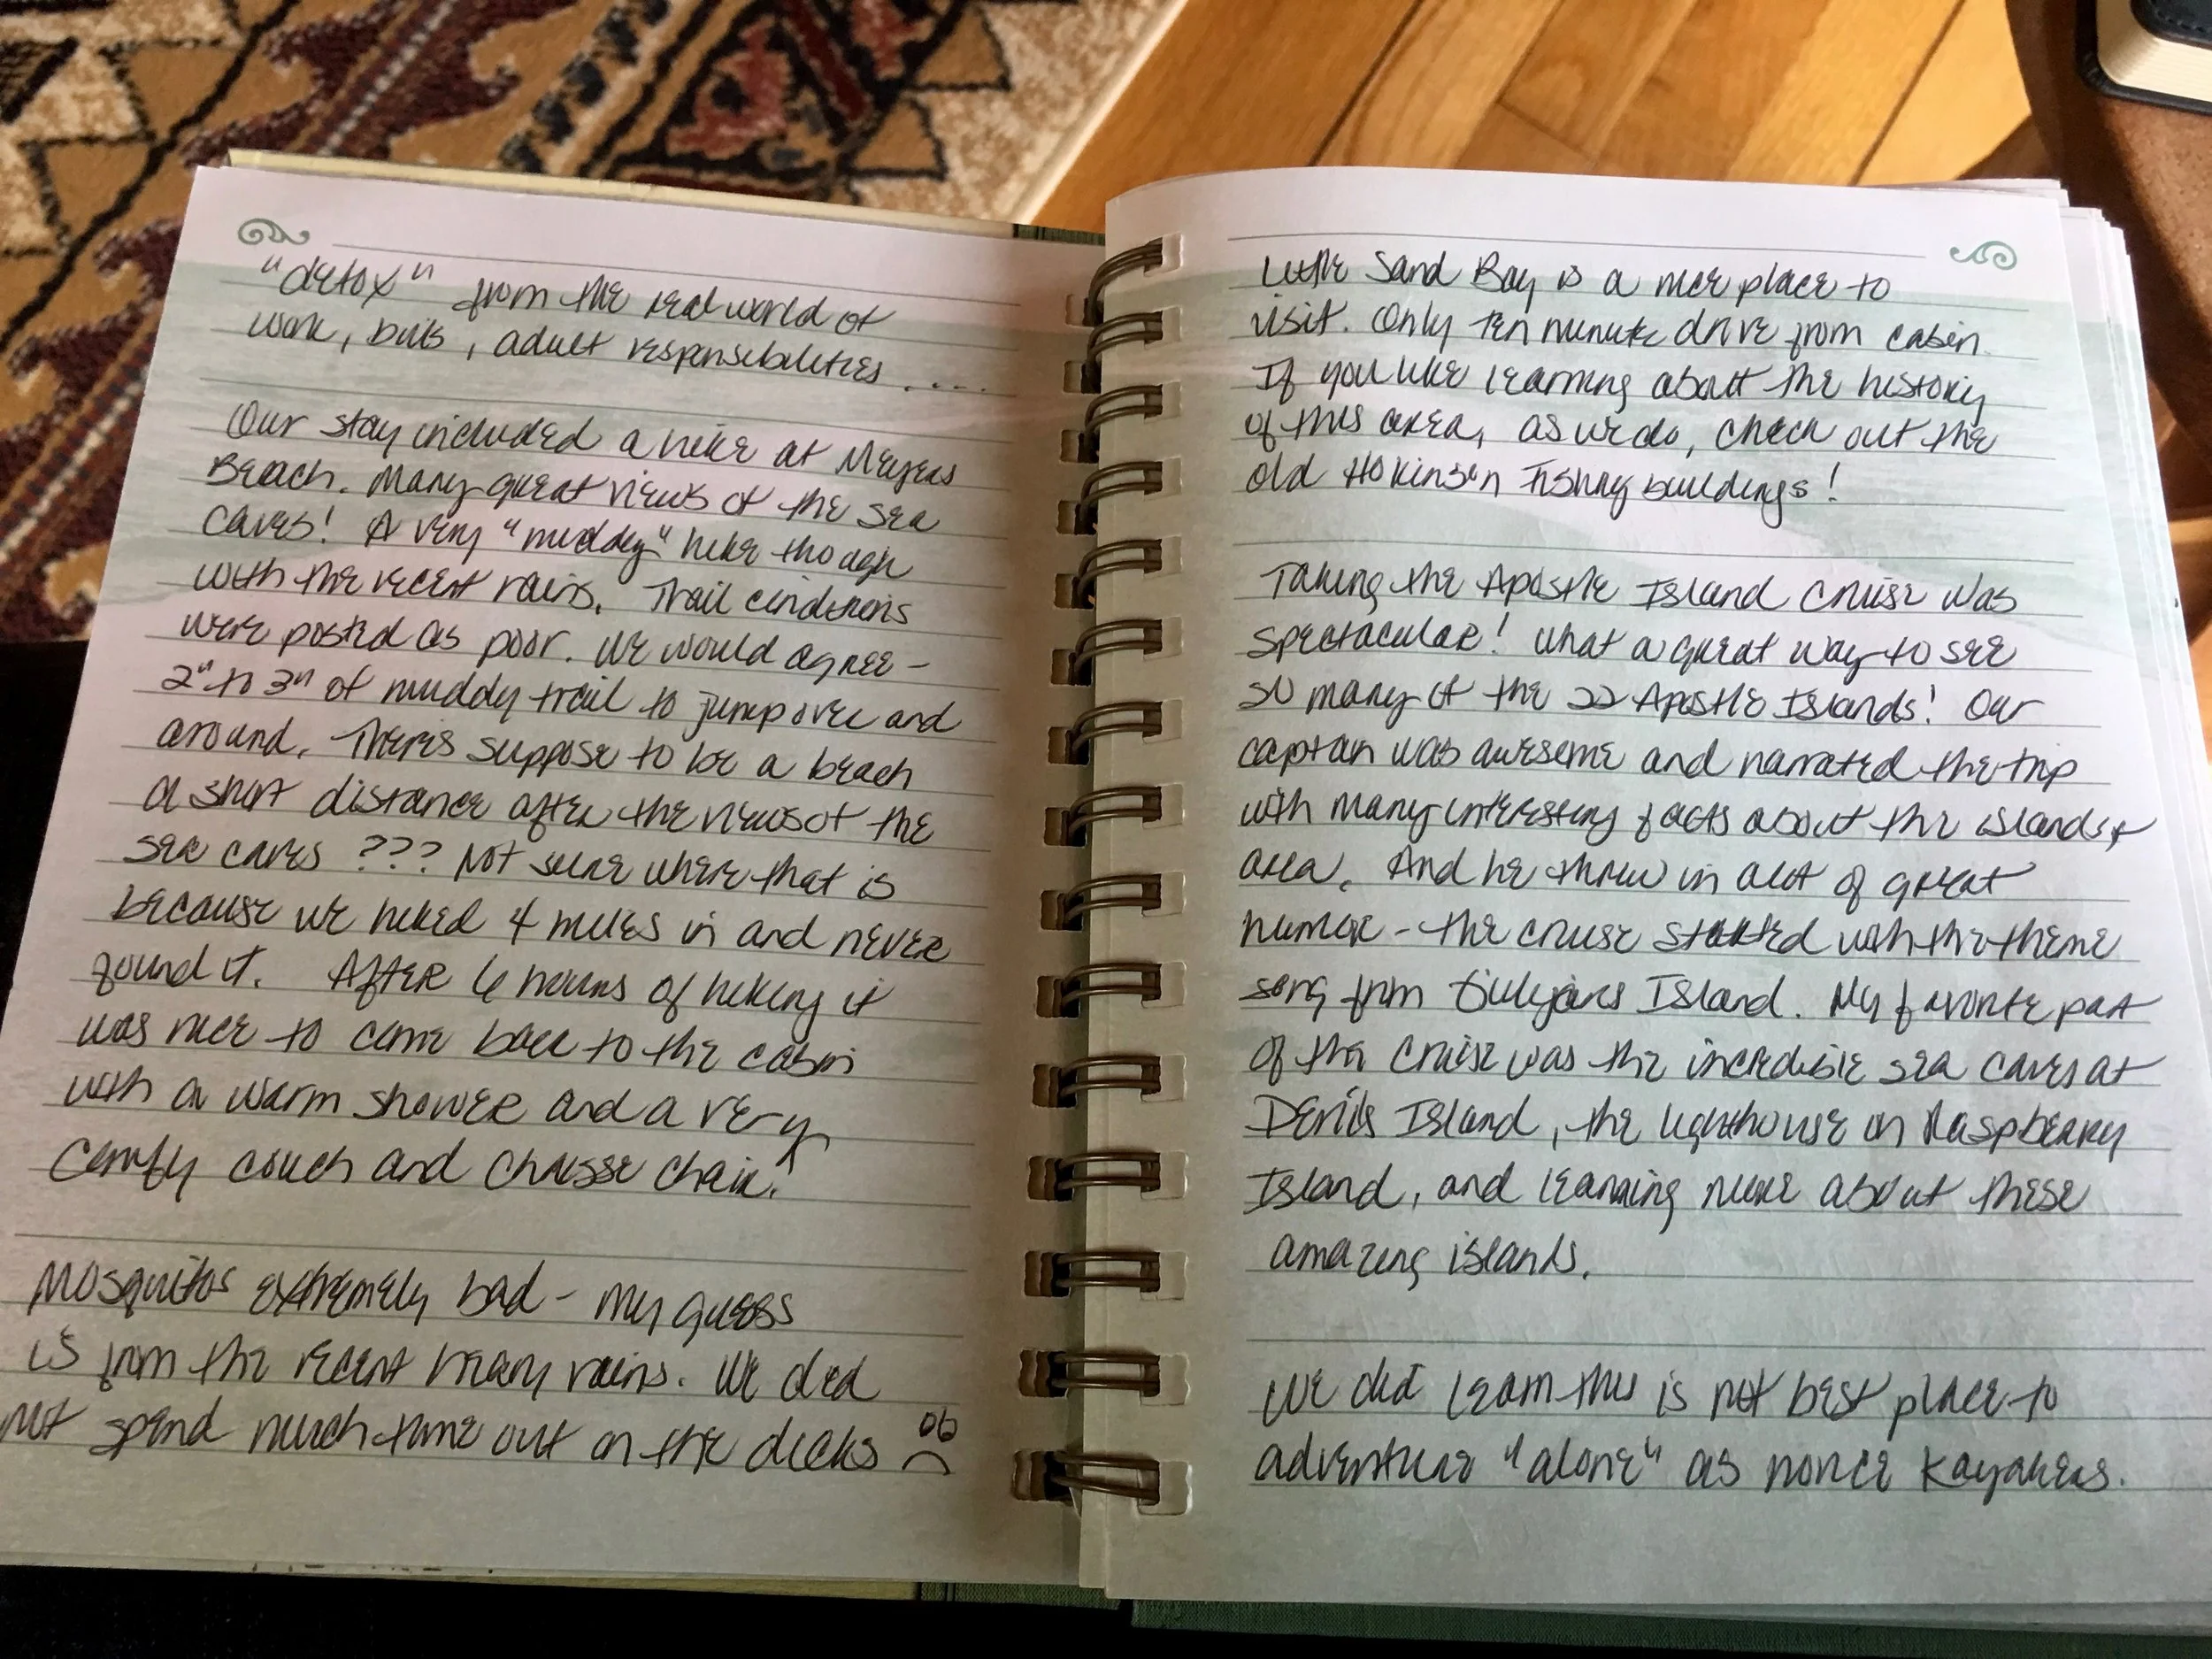 "detox" from the real world of
work, bills, adult responsibilities ....
Our stay included a hike at Meyers
Beach. Many great views of the sea
caves! A very "muddy" hike though
with the recent rains. Trail conditions
were posted as poor. We would agree -
2" to 3" of muddy trail to jump over and
around. Theres suppose to be a beach
a short distance after the views of the
sea caves ??? Not sure where that is
because we hiked 4 miles in and never
found it. After 6 hours of hiking it
was nice to come back to the cabin
with a warm shower and a very
comfy couch and chaisse chair!
Mosquitos extremely bad - my guess
is from the recent heavy rains. We did
not spend much time out on the decks
Little Sand Bay is a nice place to
visit. Only ten minute drive from cabin.
If you like learning about the history
of this area, as we do, check out the
old Hokinson Fishing buildings!
Taking the Apostle Island Cruise was
spectacular! What a great way to see
so many of the 22 Apostle Islands! Our
captain was awesome and narrated the trip
with many interesting facts about the islands +
area. And he threw in alot of great
humor - the cruise started with the theme
song from Gilligans Island. My favorite part
of the cruise was the incredible sea caves at
Devils Island, the lighthouse on Raspberry
Island, and learning more about these
amazing islands.
We did learn this is not best place to
adventure "alone" as novice kayakers.